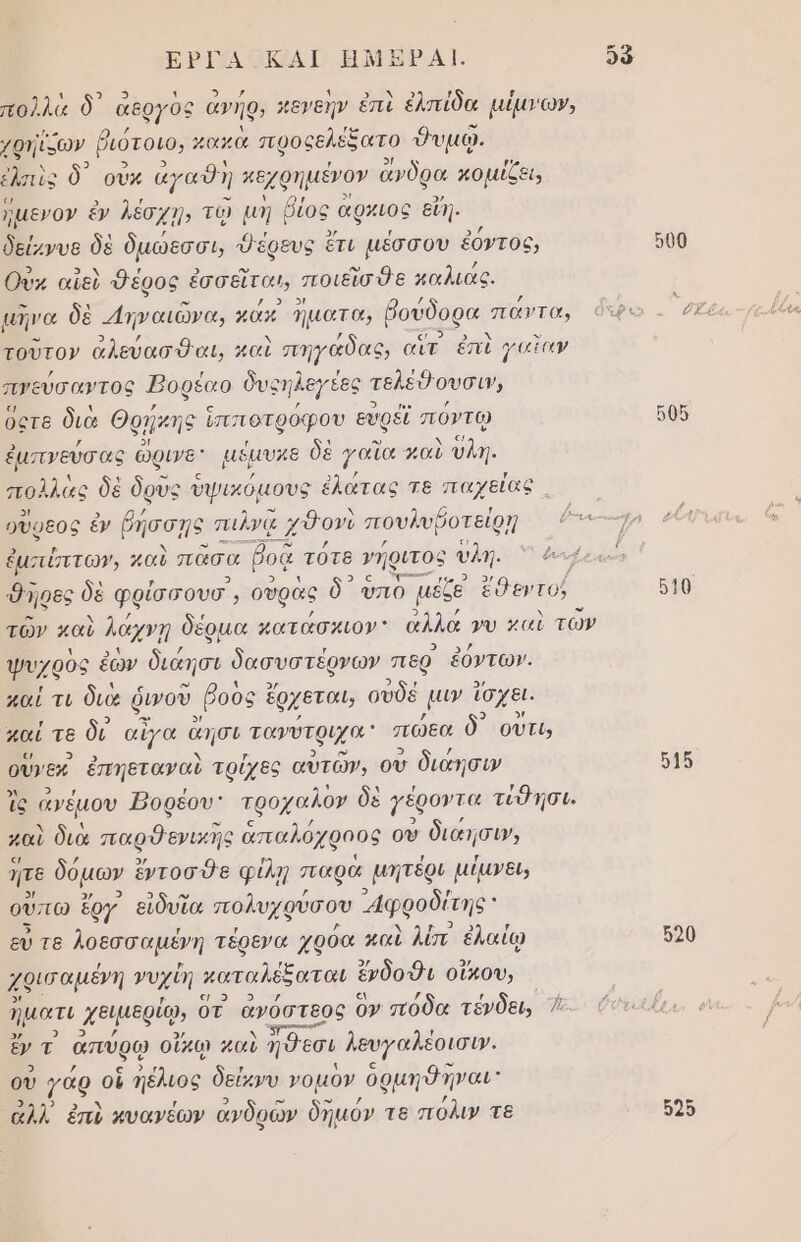 ΕΡΓΑ ΚΑΙ ΗΜΕΡΑΙ. 53
πολλὰ δ’ ἀεργὸς ἀνήρ, κενεὴν ἐπὶ ἐλπίδα μίμνων,
χρηΐζων βιότοιο, κακὰ προςελέξατο θυμῷ.
ἐλπὶς δ’ οὐκ ἀγαθὴ κεχρημένον ἄνδρα κομίζει,
ἥμενον ἐν λέσχῃ, τῷ μὴ βίος ἄρκιος εἴη.
δείκνυε δὲ δμώεσσι, θέρευς ἔτι μέσσου ἐόντος, 500
Οὐκ αἰεὶ θέρος ἐσσεῖται, ποιεῖσθε καλιάς.
μῆνα δὲ Ληναιῶνα, κάκ’ ἤματα, βούδορα πάντα,
τοῦτον ἀλεύασθαι, καὶ πηγάδας, αἵτ’ ἐπὶ γαῖαν
πνεύσαντος Βορέαο δυςηλεγέες τελέθουσιν,
ὅςτε διὰ Θρῄκης ἱπποτρόφου εὐρέϊ πόντῳ 505
ἐμπνεύσας ὤρινε· μέμυκε δὲ γαῖα καὶ ὕλη.
πολλὰς δὲ δρῦς ὑψικόμους ἐλάτας τε παχείας
οὔρεος ἐν βήσσῃς πιλνᾷ χθονὶ πουλυβοτείρῃ
ἐμπίπτων, καὶ πᾶσα βοᾷ τότε νήριτος ὕλη.
θῆρες δὲ φρίσσουσ’, οὐρὰς δ’ ὑπὸ μέζε’ ἔθεντο, 510
τῶν καὶ λάχνῃ δέρμα κατάσκιον· ἀλλά νυ καὶ τῶν
ψυχρὸς ἐὼν διάησι δασυστέρνων περ ἐόντων.
καί τι διὰ ῥινοῦ βοὸς ἔρχεται, οὐδέ μιν ἴσχει.
καί τε δι’ αἶγα ἄησι τανύτριχα· πώεα δ’ οὔτι,
οὕνεκ’ ἐπηεταναὶ τρίχες αὐτῶν, οὐ διάησιν 515
ἲς ἀνέμου Βορέου· τροχαλὸν δὲ γέροντα τίθησι.
καὶ διὰ παρθενικῆς ἁπαλόχροος οὐ διάησιν,
ἥτε δόμων ἔντοσθε φίλῃ παρὰ μητέρι μίμνει,
οὔπω ἔργ’ εἰδυῖα πολυχρύσου Ἀφροδίτης·
εὖ τε λοεσσαμένη τέρενα χρόα καὶ λίπ’ ἐλαίῳ 520
χρισαμένη νυχίη καταλέξαται ἔνδοθι οἴκου,
ἤματι χειμερίῳ, ὅτ’ ἀνόστεος ὃν πόδα τένδει,
ἔν τ’ ἀπύρῳ οἴκῳ καὶ ἤθεσι λευγαλέοισιν.
οὐ γάρ οἱ ἠέλιος δείκνυ νομὸν ὁρμηθῆναι·
ἀλλ’ ἐπὶ κυανέων ἀνδρῶν δῆμόν τε πόλιν τε 525